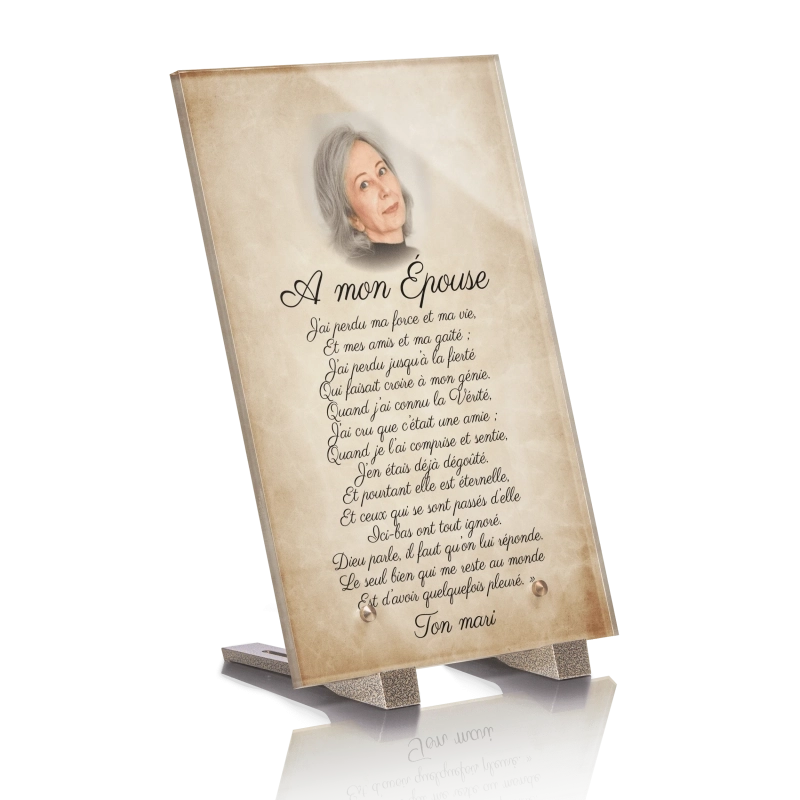 A mon Épouse
J'ai perdu ma force et ma vie,
Et mes amis et ma gaîté ;
J'ai perdu jusqu'à la fierté
Qui faisait croire à mon génie.
Quand j'ai connu la Vérité,
J'ai cru que c'était une amie ;
Quand je l'ai comprise et sentie,
J'en étais déjà dégoûté.
Et pourtant elle est éternelle,
Et ceux qui se sont passés d'elle
Ici-bas ont tout ignoré.
Dieu parle, il faut qu'on lui réponde.
Le seul bien qui me reste au monde
Est d'avoir quelquefois pleuré. »
Ton mari